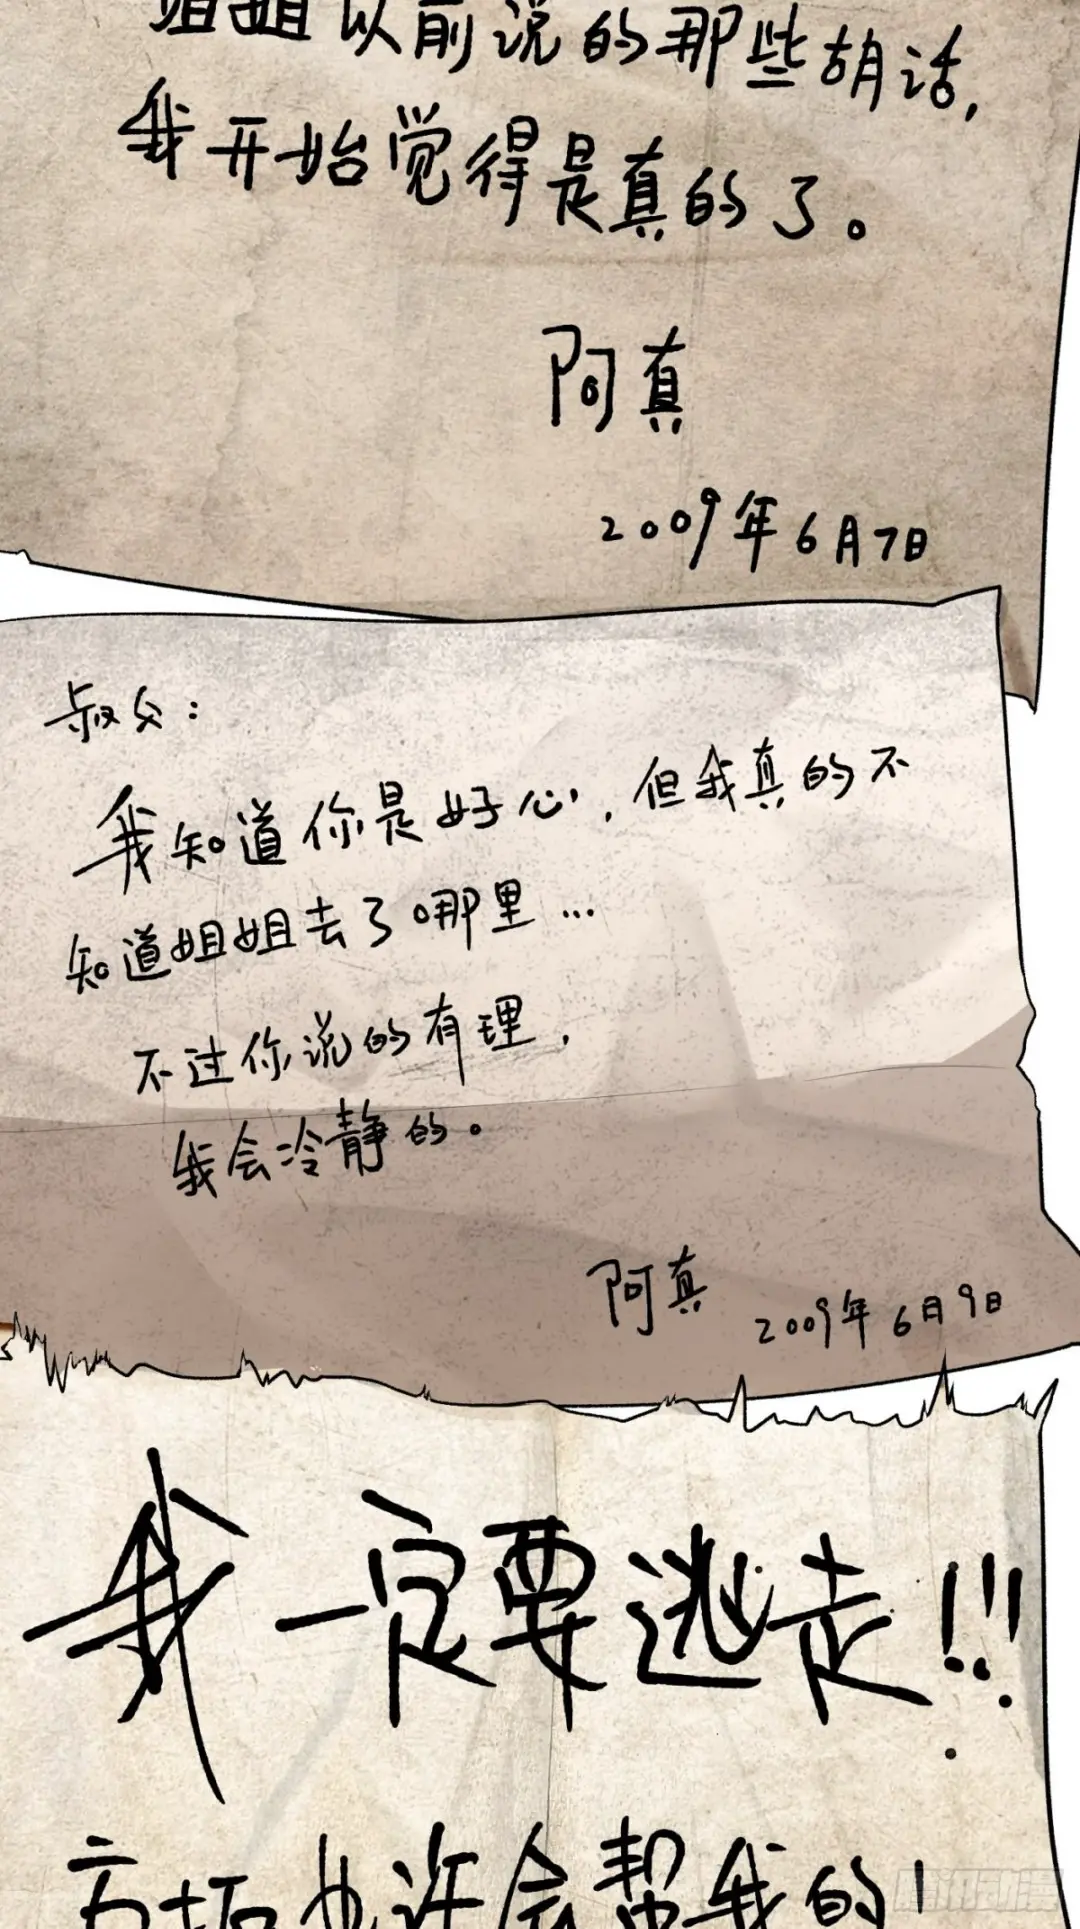 姐姐以前说的那些胡话，
我开始觉得是真的了。
阿真
2009年6月7日
叔父：
我知道你是好心，但我真的不
知道姐姐去了哪里…
不过你说的有理，
我会冷静的。
阿真 2009年6月9日
我一定要逃走！！！
也许会帮我的！
腾讯动漫